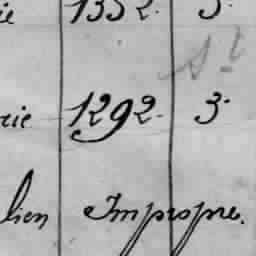 ie 1352. 3.
St
rie 1292. 3.
lien Impropre.